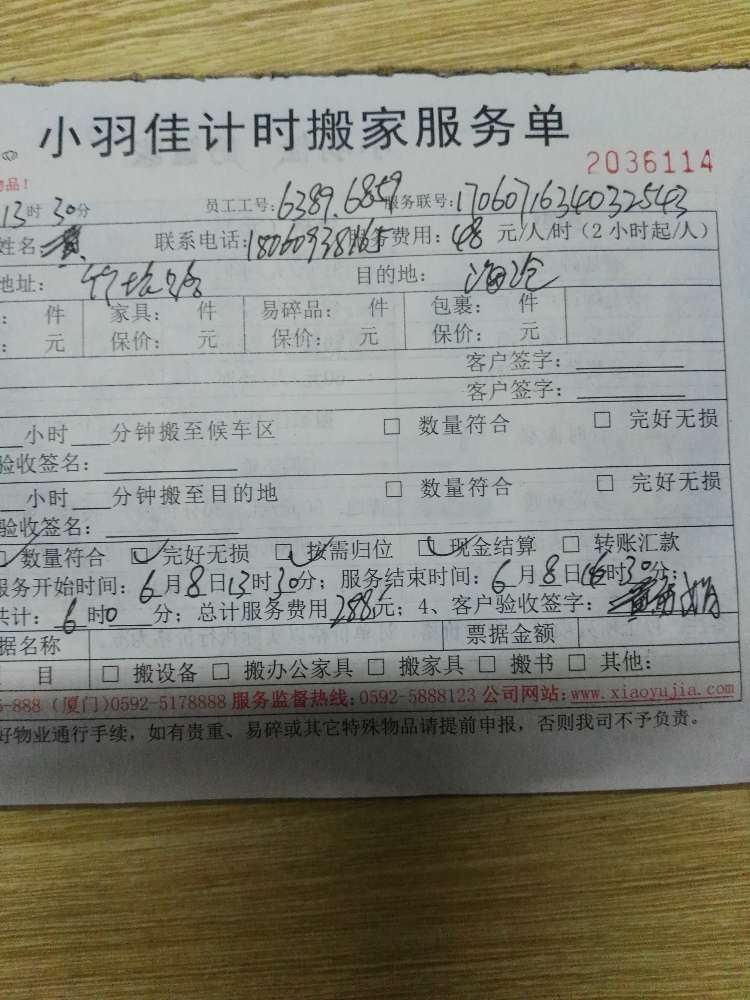 小羽佳计时搬家服务单
2036114
物品!
13时30分 员工工号:6389.6859 服务联号:1706071634032543
姓名:黄 联系电话: 服务费用:48元/人/时(2小时起/人)
地址: 目的地:海沧
: 件 家具: 件 易碎品: 件 包裹: 件
: 元 保价: 元 保价: 元 保价: 元
客户签字:
客户签字:
小时 分钟搬至候车区 □ 数量符合 □ 完好无损
验收签名:
小时 分钟搬至目的地 □ 数量符合 □ 完好无损
验收签名:
☑ 数量符合 ☑ 完好无损 ☑ 按需归位 ☑ 现金结算 □ 转账汇款
服务开始时间:6月8日13时30分;服务结束时间:6月8日16时30分;
共计:6时0分;总计服务费用288元;4、客户验收签字:
据名称 票据金额
目 □ 搬设备 □ 搬办公家具 □ 搬家具 □ 搬书 □ 其他:
-888 (厦门)0592-5178888 服务监督热线:0592-5888123 公司网站:www.xiaoyujia.com
好物业通行手续,如有贵重、易碎或其它特殊物品请提前申报,否则我司不予负责。